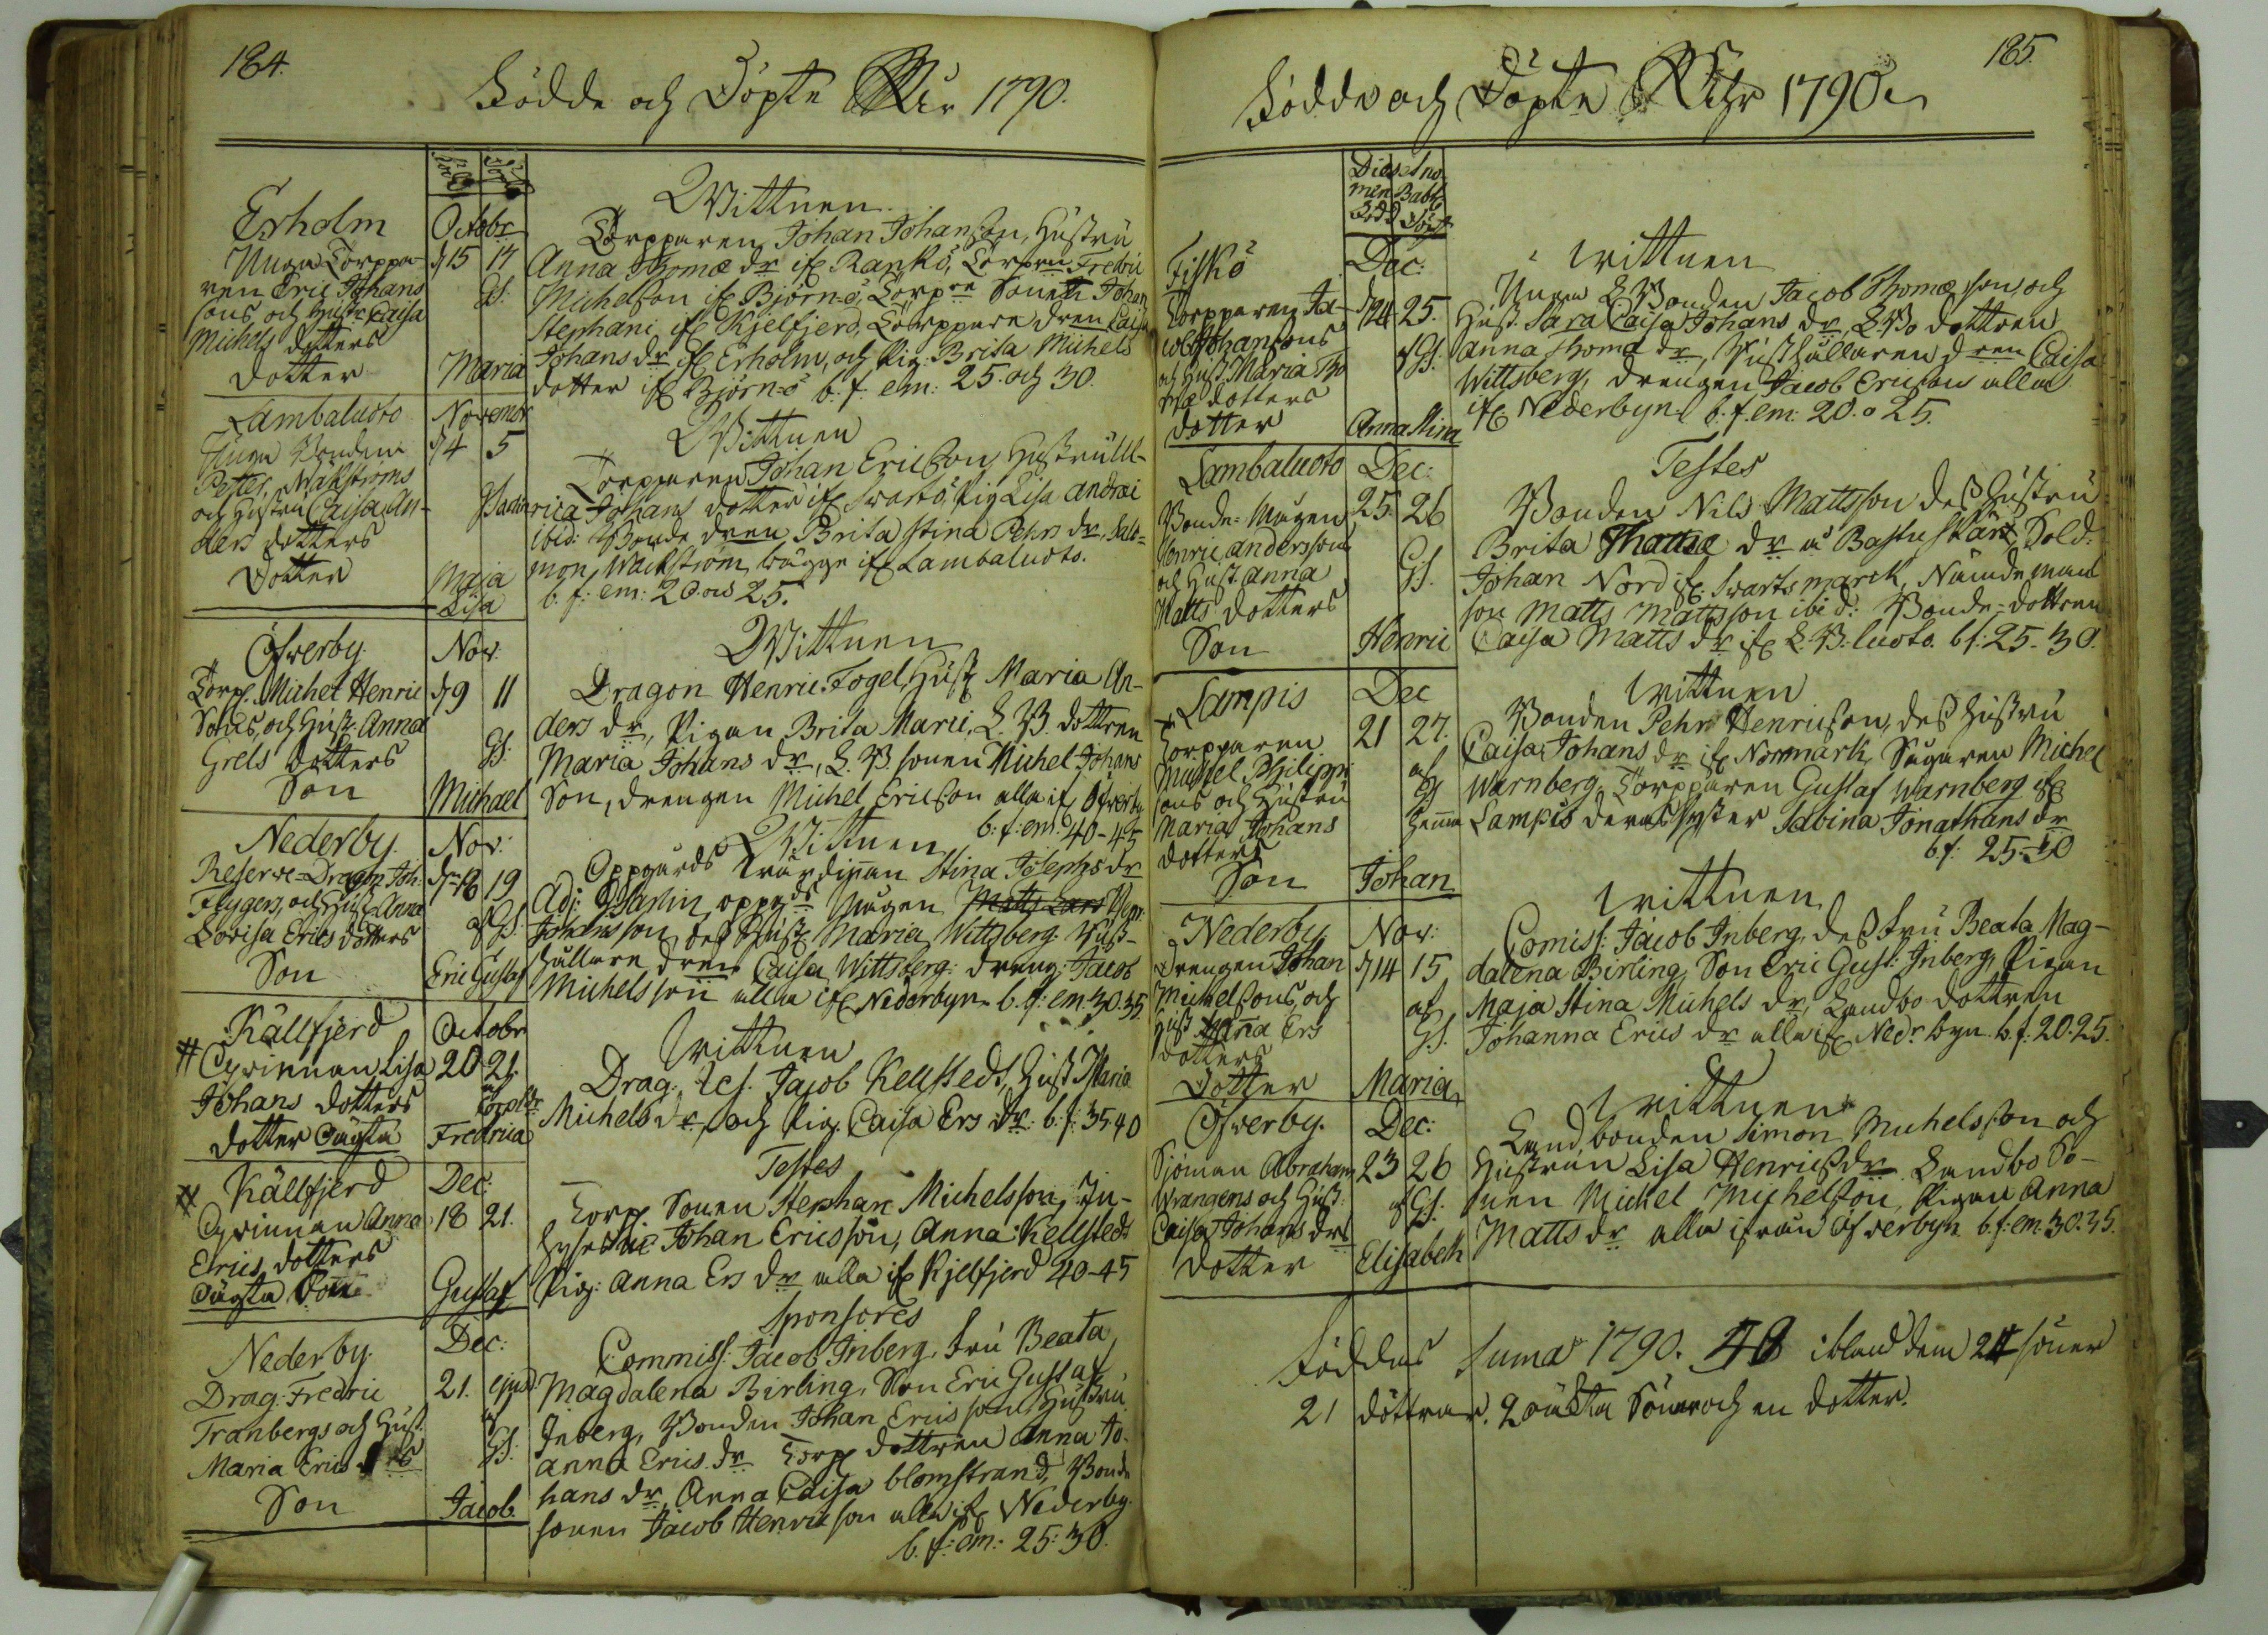 184.
Födde och Döpte År 1790.
Wittnen
Erholm
Octobr
Unga Torppa-
ren Eric Johans
sons och Hustr Caisa
Michels dotters
dotter
d 15 17
GS:
Maria
Torpparen Johan Johansson, Hustru
Anna Thomæ dr if Rankö, Torpren Fredric
Michelson if Björn-ö, Torpre Sonen Johan
Stephani if Kjelfjerd, Torppare dren Caisa
Johans dr if Erholm, och Pig. Brita Michels
dotter if Björn-ö b. f. em: 25. och 30.
Lambaluoto
Novembr
Unga Bonden
Petter Wäkströms
och Hustru Caisa An-
ders dotters
Dotter
d 4 5
Maja
Lisa
Wittnen
Torpparen Johan Ericsson Hustru Ul-
rica Johans dotter if Swartö, Pig Lisa Andræi
ibid: Bonde dren Brita Stina Pehrs dr, Salo-
mon Wäckström, bägge if Lambaluoto.
b. f: em: 20. och 25.
Öfwerby
Nov:
Torp. Michel Henric
Sons, och Hustr. Anna
Grels dotters
Son
d 9 11
GS:
Michael
Wittnen
Dragon Henric Fogel, Hustr Maria An-
ders dr, Pigan Brita Marci, L. B. dottren
Maria Johans dr, L. B sonen Michel Johans
Son, drengen Michel Ericson alla if Öfwerby
b: f: em: 40-45
Nederby.
Nov:
Reserve-Dragon Joh.
Flygers, och Hustr Anna
Lovisa Erics dotters
Son
18 19
GS.
Eric Gustaf
Wittnen
Oppgårds Wärdinnan Stina Josephs dr
Adj: Oppgds Mågen Matts Lars Henr
Johansson, dess Hustr Maria Wittsberg. Huss-
hållare dren Caisa Wittsberg. dreng: Jacob
Michelsson alla if Nederbyn b. f: em 30. 35
Källfjerd
Octobr
# Qwinnan Lisa
Johans dotters
dotter Oägta
20 21.
af
Fredrica
Wittnen
Drag. Res. Jacob Kellstedt, Hust Maria
Michels dr, och Pig. Caisa Ers dr: b. f: 35 40
# Källfjerd
Dec:
Qwinnan Anna
Erics dotters
Oägta Son
18 21.
Gustaf
Testes
Torp Sonen Stephan Michelsson, In-
hyses Johan Ericsson, Anna Kellstedt
Pig: Anna Ers dr alla if Kjelfjerd 40-45
Nederby.
Dec:
Drag. Fredric
Tranbergs och Hust.
Maria Erics drs
Son
21. ejusd
af
GS:
Jacob.
Sponsores
Commiss: Jacob Inberg, Fru Beata
Magdalena Birling, Son Eric Gustaf
Inberg, Bonden Johan Ericsson Hustru
Anna Erics dr Torp dottren Anna Jo-
hans dr, Anna Caisa Blomstrand, Bonde
sonen Jacob Henricson alla if Nederby
b. f: em: 25: 30.
185.
Födde och Döpte Åhr 1790
Dies et no
men Babt:
Född Döpt
Fiskö
Dec:
Torpparen Ja-
cob Johansons
och Hust Maria Tho
mæ dotters
dotter
d 24 25.
af GS.
Anna Stina
Wittnen
Unga L. Bonden Jacob Thomæ son och
Hust. Sara Caisa Johans dr, L. Bo dottren
Anna Thomæ dr, Hushållaren dren Caisa
Wittsberg, drengen Jacob Ericson alla
if Nederbyn b. f. em: 20. o 25.
Lambaluoto
Dec:
Bonde-Mågen
Henric Andersson
och Hust Anna
Matts dotters
Son
25. 26
GS.
Henric
Testes
Bonden Nils Mattsson dess Hustru
Brita Matts dr å Bastuskär, Sold.
Johan Nord if Swartsmarck, Nämdeman
son Matts Mattsson ibid: Bonde-dottren
Caisa Matts dr if L. B. luoto. b f: 25. 30.
Lampis
Dec
Torpparen
Michel Philipps
sons och Hustru
Maria Johans
dotters
Son
21 27.
af
Hemma
Johan
Wittnen
Bonden Pehr Henricson, dess Hustru
Caisa Johans dr if Norrmark, Sågaren Michel
Warnberg, Torpparen Gustaf Warnberg if
Lampis deras syster Sabina Jonathans dr
b f: 25-30
Nederby
Nov:
Drengen Johan
Michelsons och
Hust Anna Ers
dotters
Dotter
d 14 15
af
GS.
Maria
Wittnen
Comiss: Jacob Inberg, dess Fru Beata Mag-
dalena Birling, Son Eric Gust: Inberg, Pigan
Maja Stina Michels dr, Landbo dottren
Johanna Erics dr alla if Nedr byn. b. f: 20. 25.
Öfwerby.
Dec:
Sjöman Abraham
Wrangens och Hust.
Caisa Johans drs
dotter
23 26
af GS.
Elisabeth
Wittnen
Landbonden Simon Michelsson och
Hustrun Lisa Henrics dr Landbo So-
nen Michel Michelson, Pigan Anna
Matts dr alla ifrån Öfwerbyn b. f: em. 30. 35.
Föddas Suma 1790. 48 ibland dem 24 söner
21 döttrar. 2 oäkta Söner och en dotter.